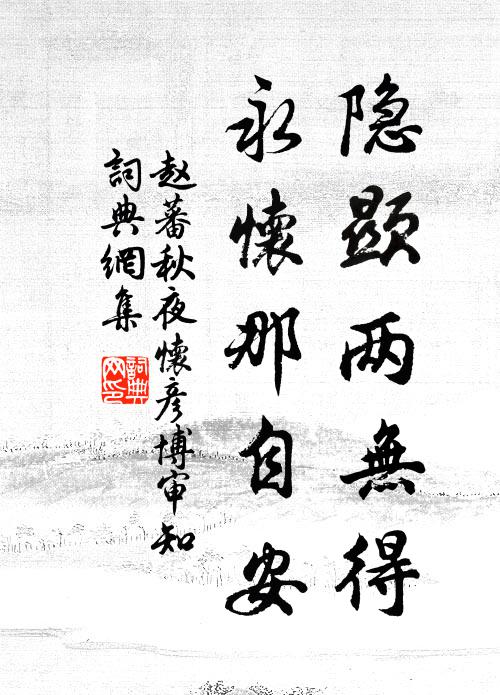 隐顯两無得
永懷那自安
赵蕃秋夜懷彦博审知
詞典網集
詞典
网印